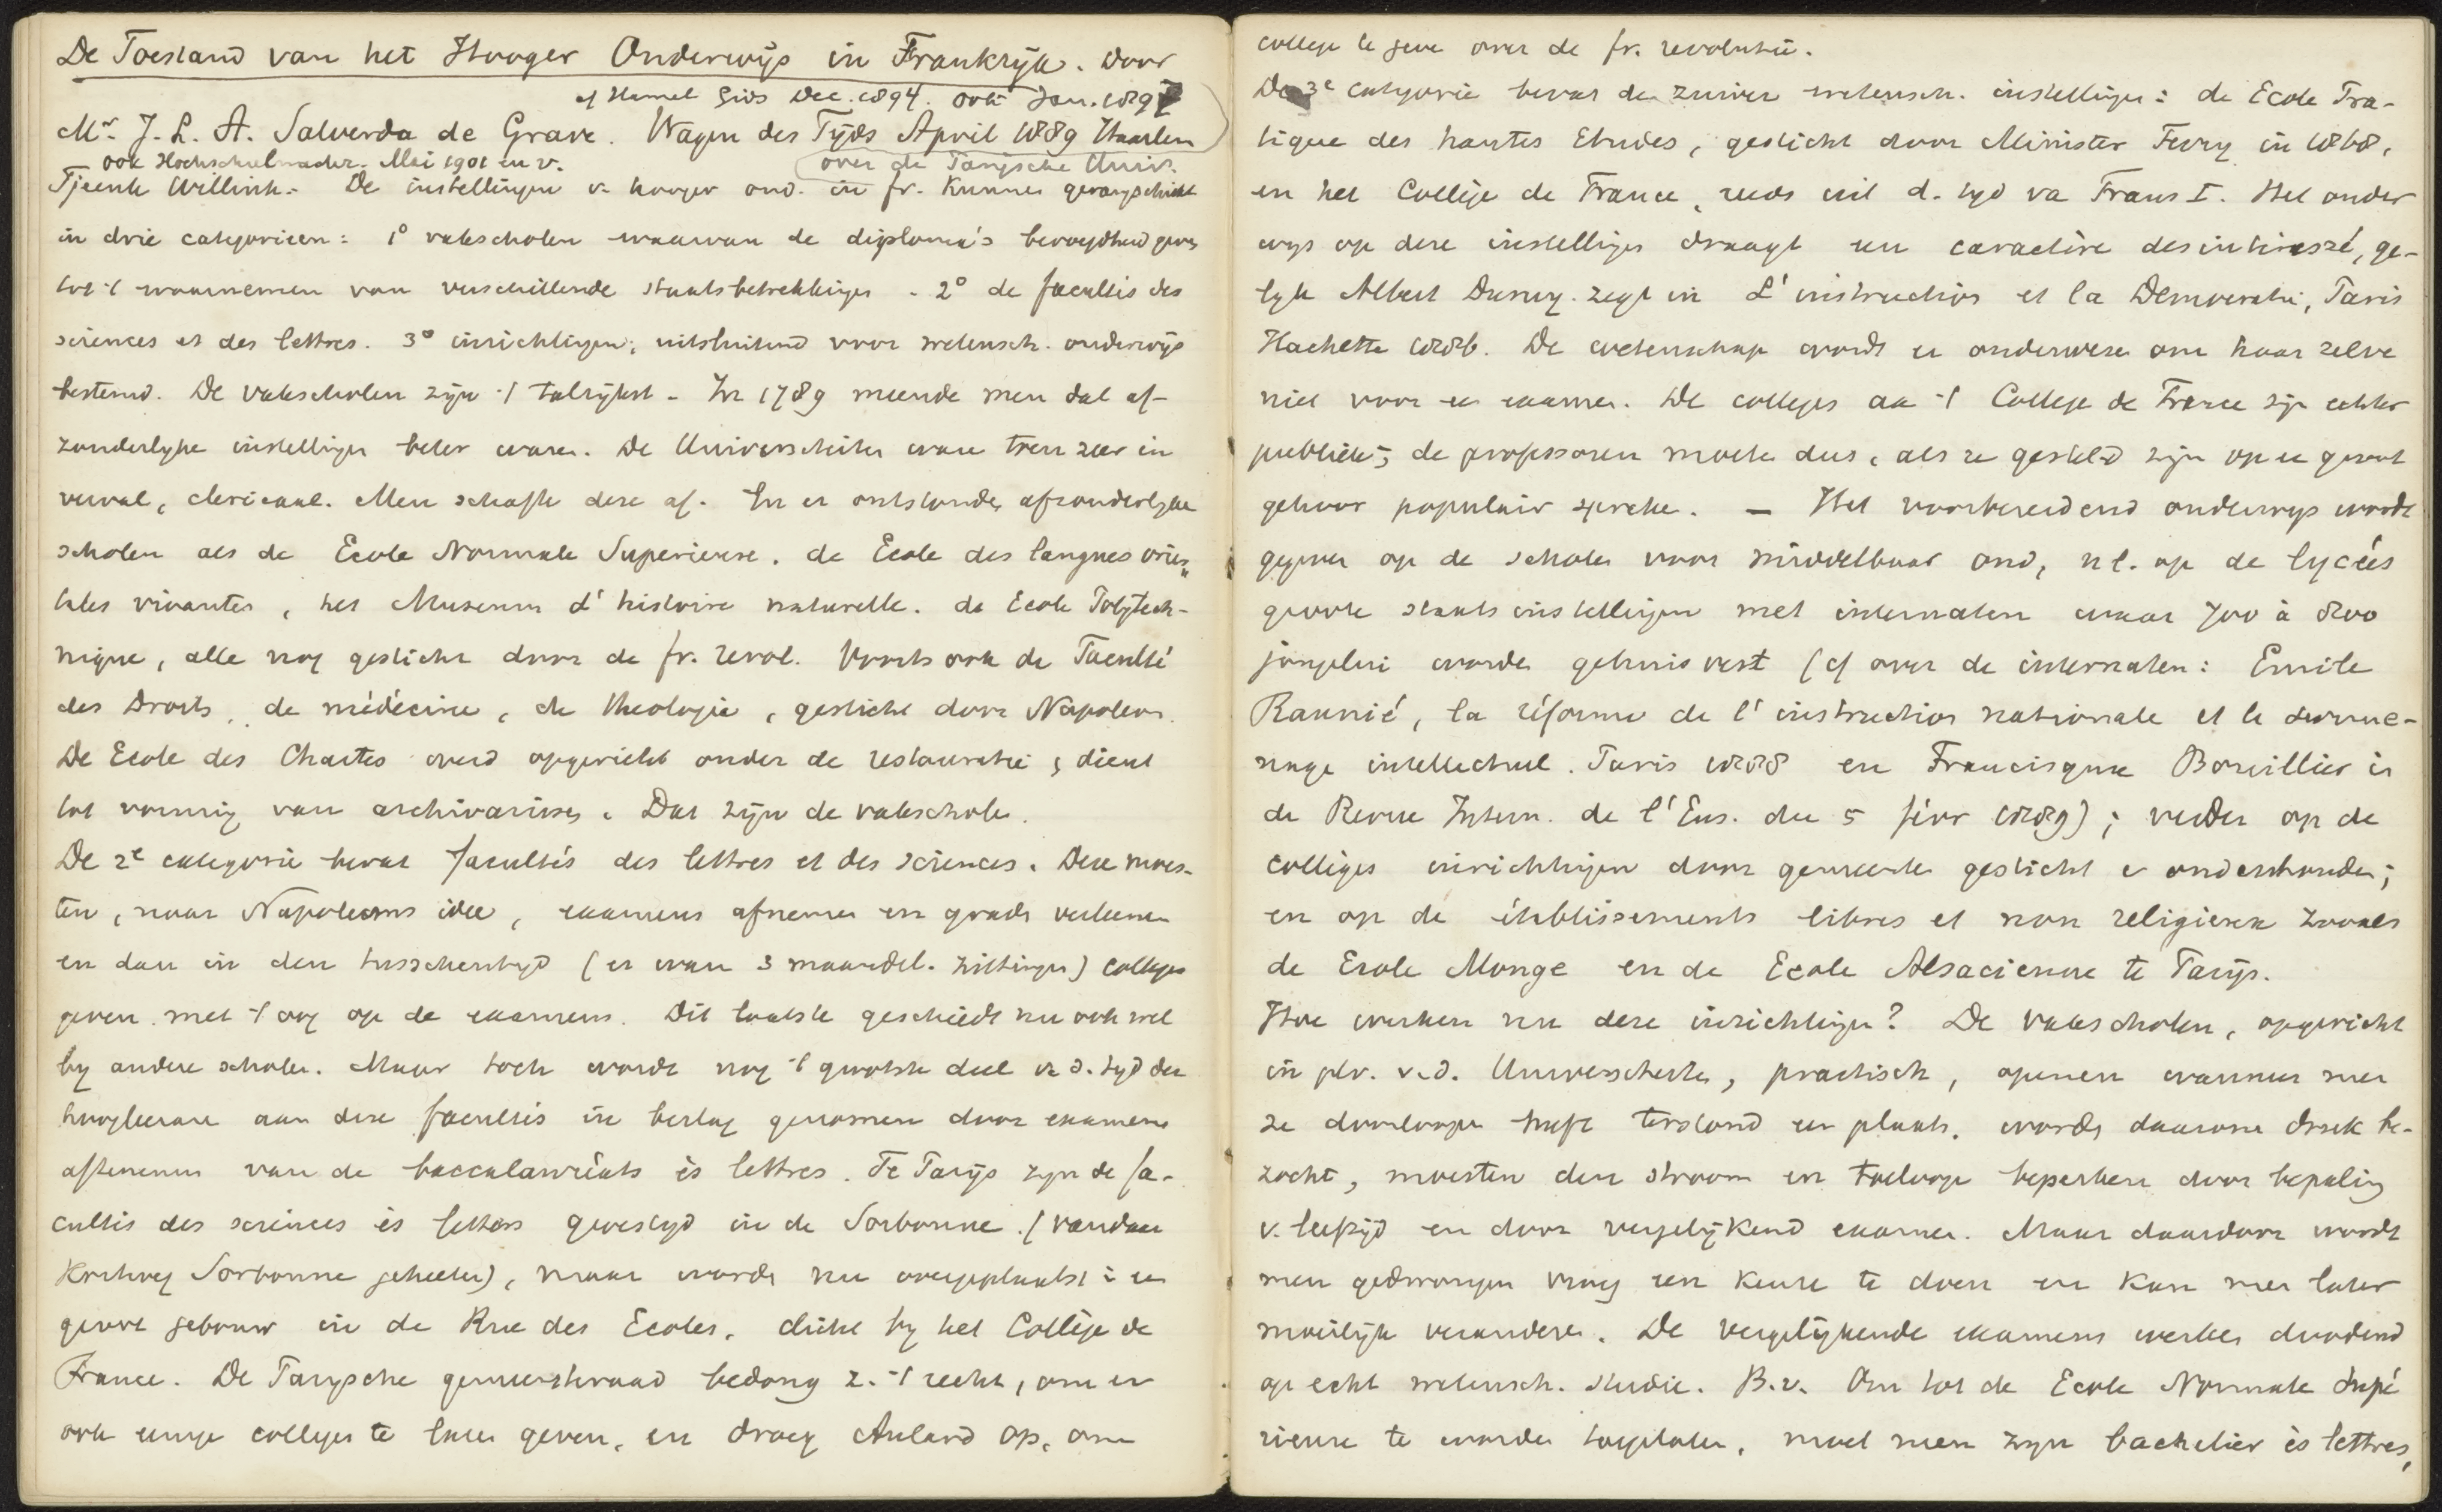 De Toestand van het Hooger Onderwijs in Frankrijk. door
cf Hamel Gids Dec. 1894. ook Jan. 1897
Mr. J. L. A. Salverda de Grave. Vragen des Tijds April 1889 Haarlem
ook Hochschulnachr. Mai 1901 en v.
over de Parijsche Univ.
Tjeenk Willink. - De instellingen v. hooger ond. in fr. kunnen gerangschikt
in drie categorieen: 1° vakscholen waarvan de diploma's bevoegdheid geven
tot 't waarnemen van verschillende staatsbetrekkingen - 2° de facultés des
sciences et des lettres. 3° inrichtingen, uitsluitend voor wetensch. onderwijs
bestemd. De vakscholen zijn 't talrijkst - In 1789 meende men dat af-
zonderlyke instellingen beter waren. De Universiteiten waren toen zeer in
verval, clericaal. Men schafte deze af. En er ontstonden afzonderlyke
scholen als de Ecole Normale Superieure. de Ecole des langues orien-
tales vivantes, het Museum d'histoire naturelle. de Ecole Polytech-
nique, alle nog gesticht door de fr. revol. Voorts ook de Faculté
des Droits, de médécine, de theologie, gesticht door Napoleon.
De Ecole des Chartes werd opgericht onder de restauratie, dient
tot vorming van archivarissen. Dat zijn de vakscholen.
De 2e categorie bevat facultés des lettres et des sciences. Deze moes-
ten, naar Napoleons idee, examens afnemen en graden verleenen
en dan in den tusschentyd (er waren 3 maandel. zittingen) colleges
geven met 't oog op de examens. Dit laatste geschiedt nu ook wel
by andere scholen. Maar toch wordt nog 't grootste deel v. d. tyd der
hoogleeraren aan deze facultés in beslag genomen door examens
afnemen van de baccalauréats ès lettres. Te Parijs zijn de fa-
cultés des sciences ès lettres gevestigd in de Sorbonne. (vandaar
kortweg Sorbonne geheeten), maar worden nu overgeplaatst i een
groot gebouw in de Rue des Ecoles, dicht by het Collège de
France. De Parijsche gemeenteraad bedong z. 't recht, om er
ook eenige colleges te laten geven, en droeg Aulard op, om
college te geven over de fr. revolutie.
De 3e categorie bevat de zuiver wetensch. instellingen: de Ecole Pra-
tique des hautes Etudes, gesticht door Minister Ferry in 1868,
en het Collège de France, reeds uit d. tyd va Frans I. Het onder
wys op deze instellingen draagt een caractère desintéressé, ge-
lyk Albert Duruy zegt in L'instruction et la Démocratie, Paris
Hachette 1886. De wetenschap wordt er onderwezen om haar zelve
niet voor een examen. De colleges aa 't College de France zijn echter
publiek; de professoren moeten dus, als ze gesteld zijn op een groot
gehoor populair spreken. — Het voorbereidend onderwys wordt
gegeven op de scholen voor middelbaar ond, n l. op de lycées
groote staatsinstellingen met internaten waar 700 à 800
jongelui worden gehuisvest (cf over de internaten: Emile
Raunié, la réforme de l'instruction nationale et le surme-
nage intellectuel. Paris 1888 en Francisque Bouillier in
de Revue Intern. de l'Ens. du 5 févr 1889); verder op de
collèges inrichtingen door gemeente gesticht e onderhouden;
en op de établissements libres et non religieux zooals
de Ecole Monge en de Ecole Alsacienne te Parijs.
Hoe werken nu deze inrichtingen? De vakscholen, opgericht
in plv. v. d. Universiteiten, practisch, openen wanneer men
ze doorloopen heeft terstond een plaats, worden daarom druk be-
zocht, moesten den stroom en toeloop beperken door bepaling
v. leeftijd en door vergelijkend examen. Maar daardoor wordt
men gedwongen vroeg een keuze te doen en kan men later
moeilijk veranderen. De vergelijkende examens werken doodend
op echt wetensch. studie. B.v. Om tot de Ecole Normale Supé
rieure te worden toegelaten, moet men zijn bachelier ès lettres,